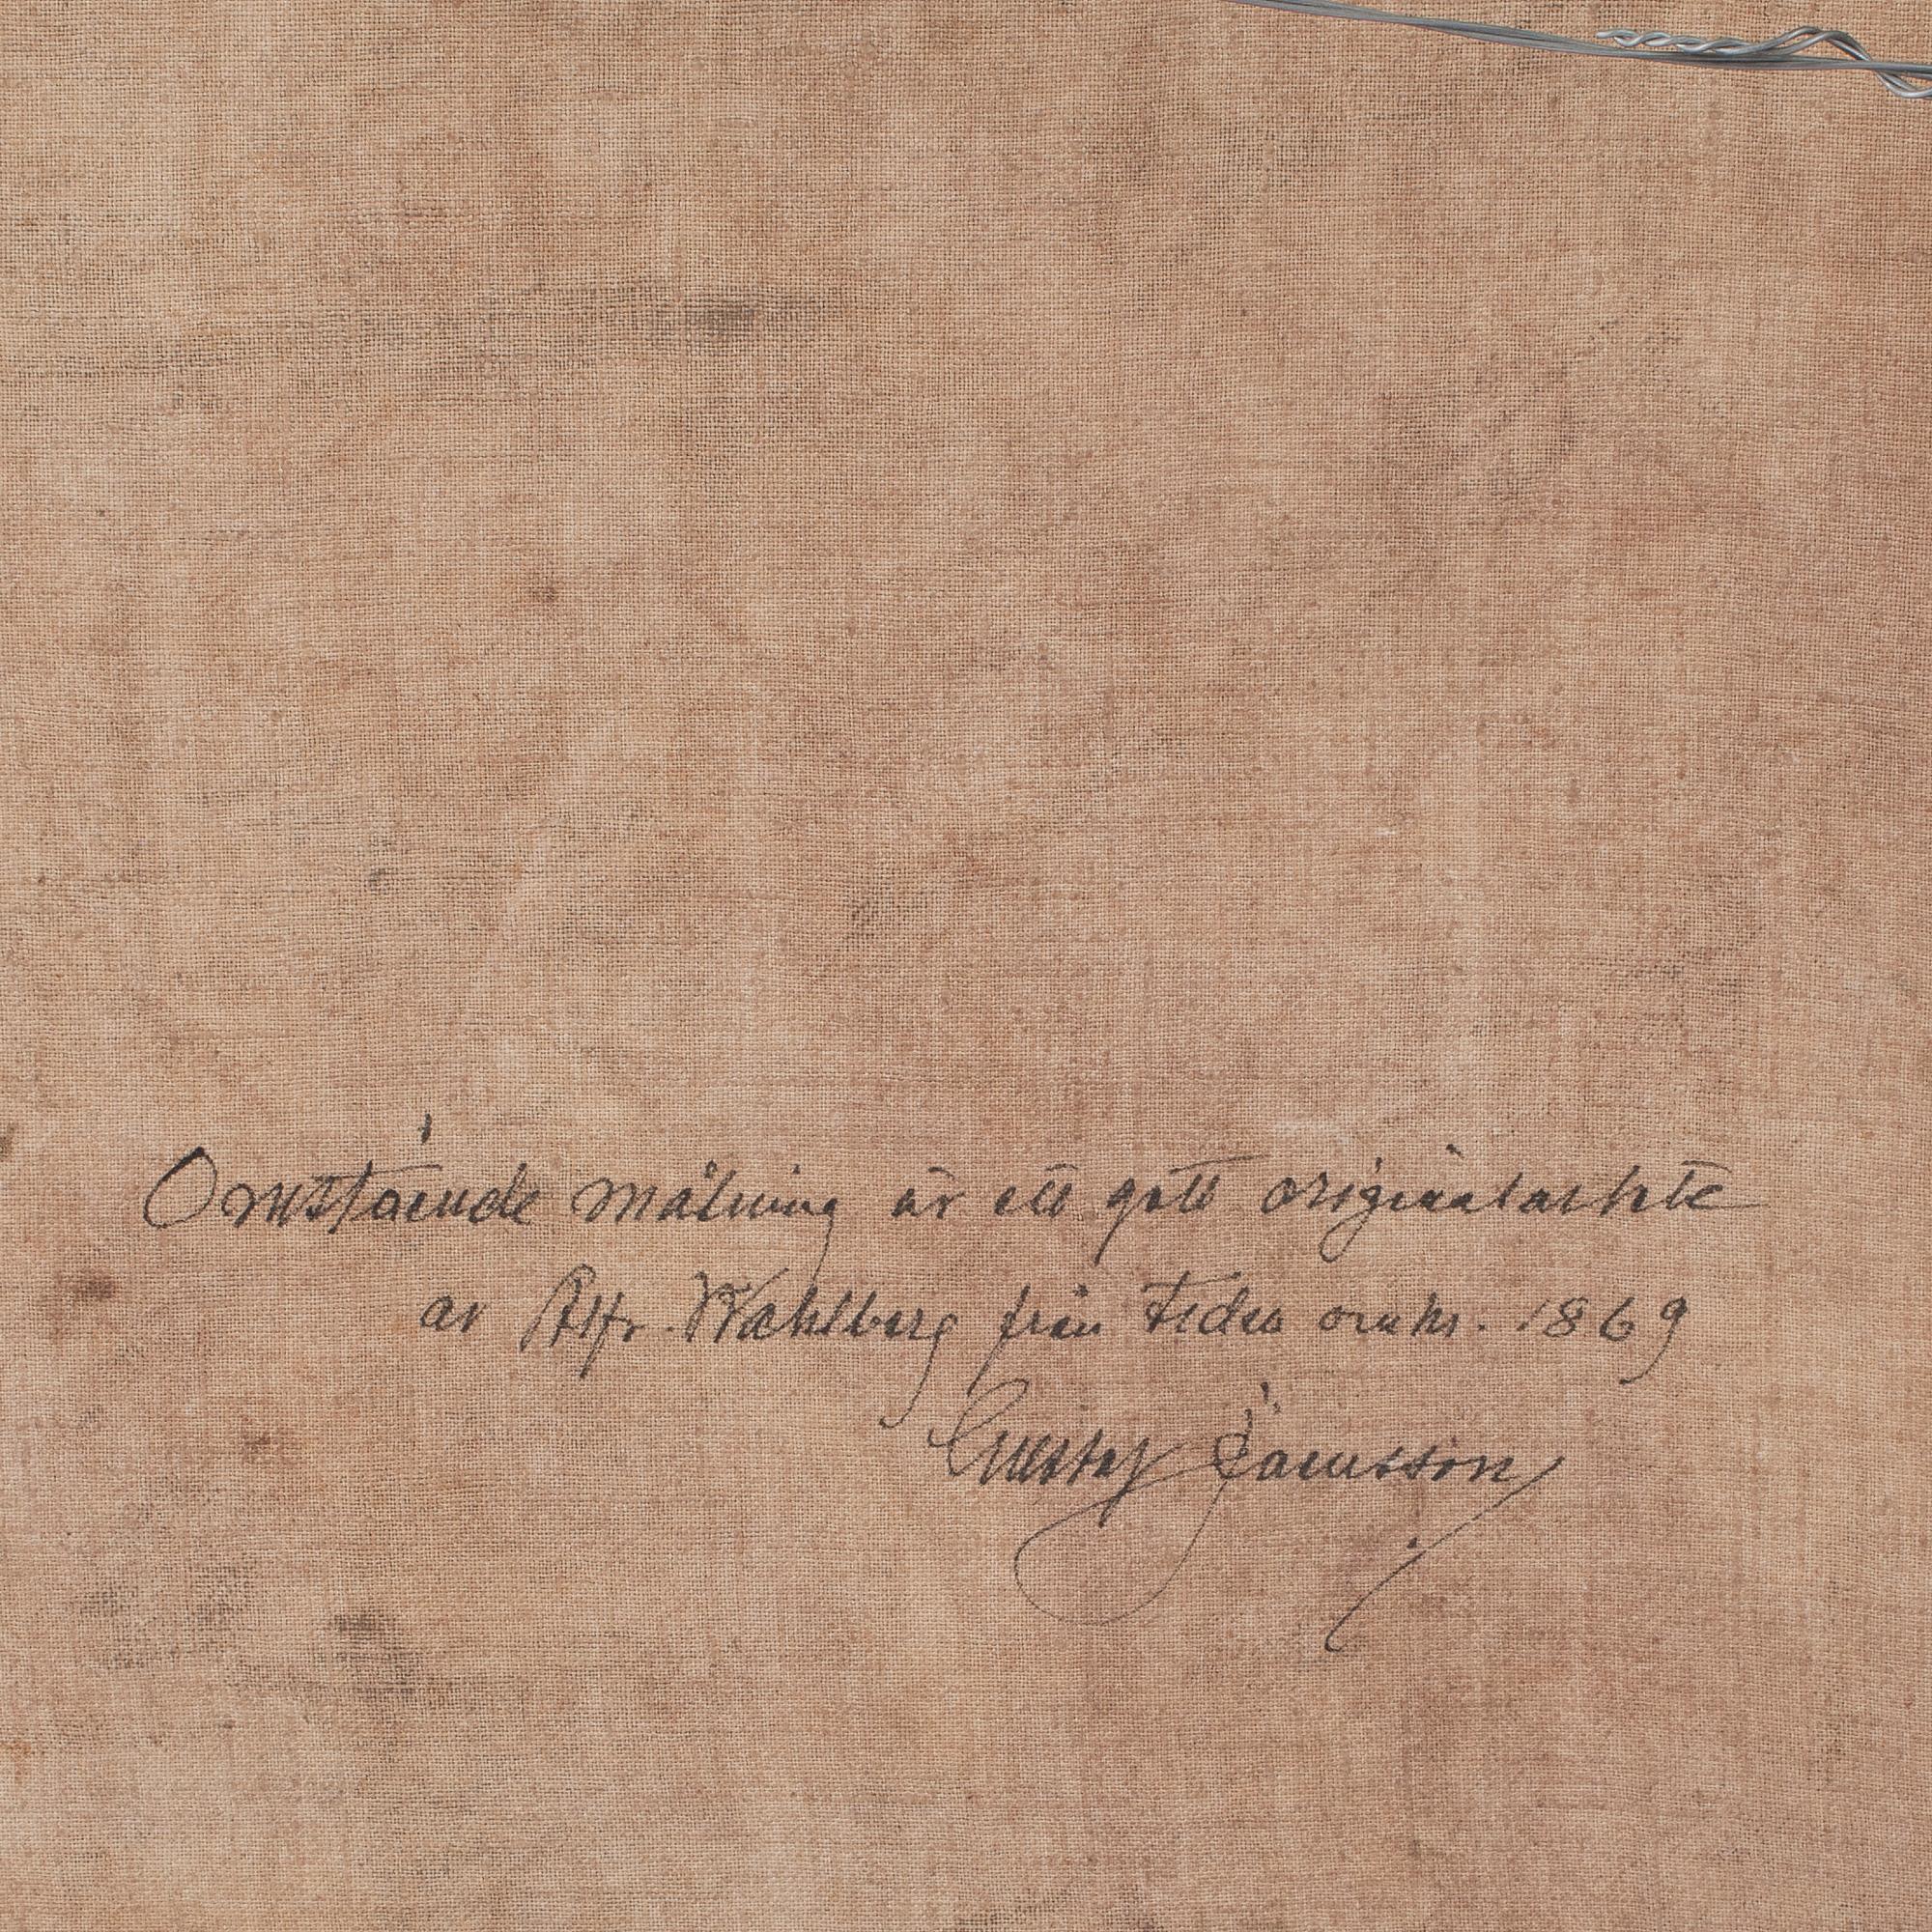 Omstående målning är ett gott originalarbete
av Alfr. Wahlberg från tiden omkr. 1869
Gustaf Jaensson